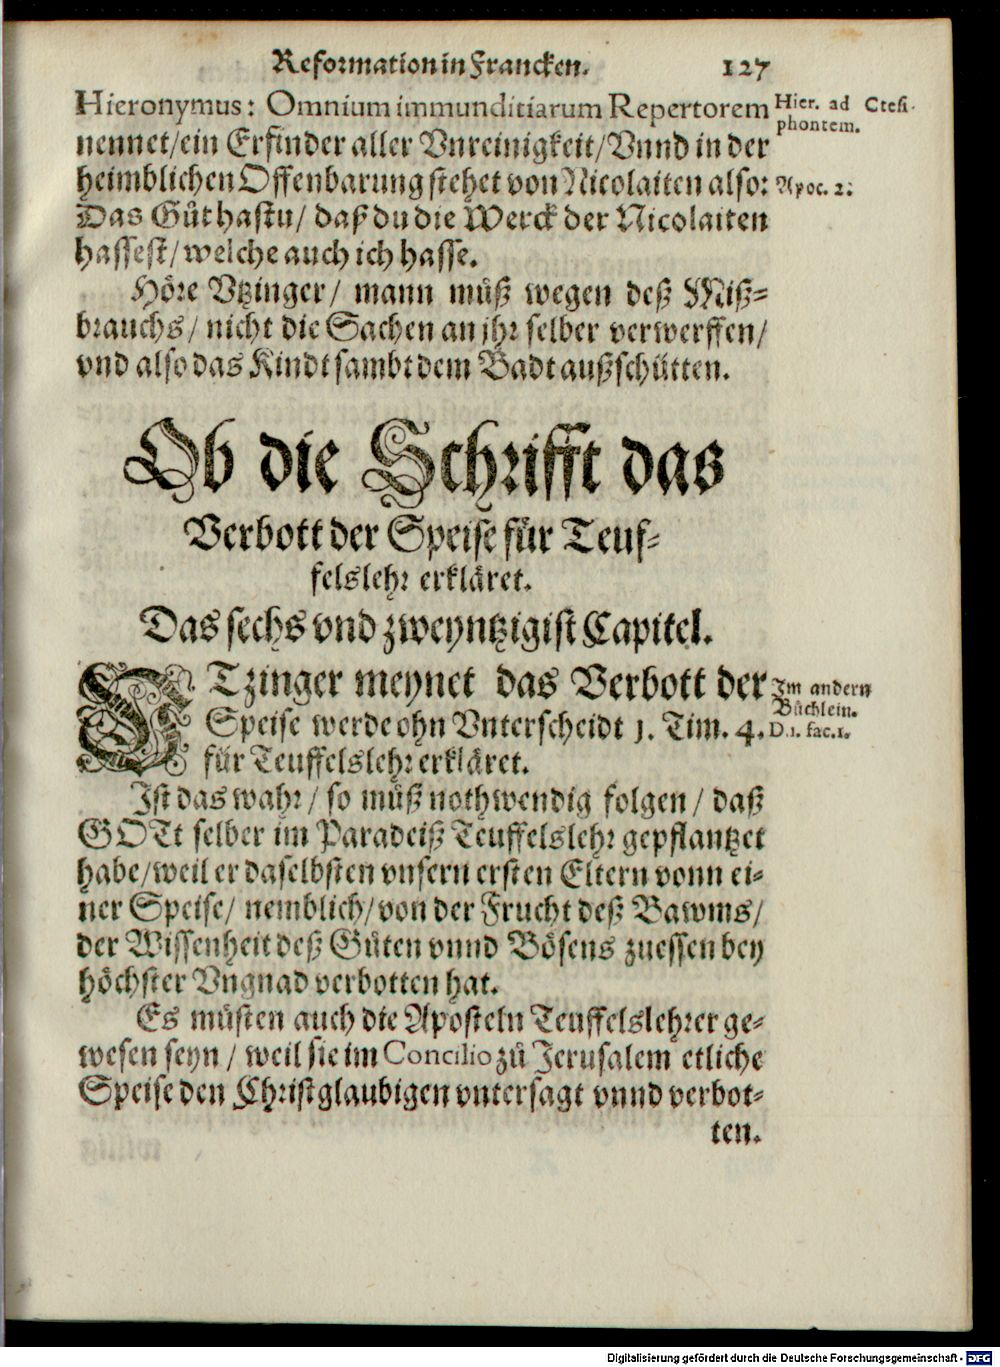 Reformation in Francken. 127
Hieronymus: Omnium immunditiarum Repertorem
Hier. ad Ctesi-
phontem.
nennet/ein Erfinder aller Vnreinigkeit/Vnnd in der
heimblichen Offenbarung stehet von Nicolaiten also:
Apoc. 2.
Das Gůt hastu/ daß du die Werck der Nicolaiten
hassest/ welche auch ich hasse.
Höre Vtzinger/ mann můß wegen deß Miß-
brauchs/ nicht die Sachen an jhr selber verwerffen/
vnd also das Kindt sambt dem Badt außschütten.
Ob die Schrifft das
Verbott der Speise für Teuf-
felslehr erkläret.
Das sechs vnd zweyntzigist Capitel.
VTzinger meynet das Verbott der
Im andern
Büchlein.
Speise werde ohn Vnterscheidt 1. Tim. 4.
D.1. fac.1.
für Teuffelslehr erkläret.
Ist das wahr/ so můß nothwendig folgen/ daß
GOTt selber im Paradeiß Teuffelslehr gepflantzet
habe/weil er daselbsten vnsern ersten Eltern vonn ei-
ner Speise/ nemblich/von der Frucht deß Bawms/
der Wissenheit deß Gůten vnnd Bösens zuessen bey
höchster Vngnad verbotten hat.
Es müsten auch die Aposteln Teuffelslehrer ge-
wesen seyn/ weil sie im Concilio zů Jerusalem etliche
Speise den Christglaubigen vntersagt vnnd verbot-
ten.
Digitalisierung gefördert durch die Deutsche Forschungsgemeinschaft - DFG